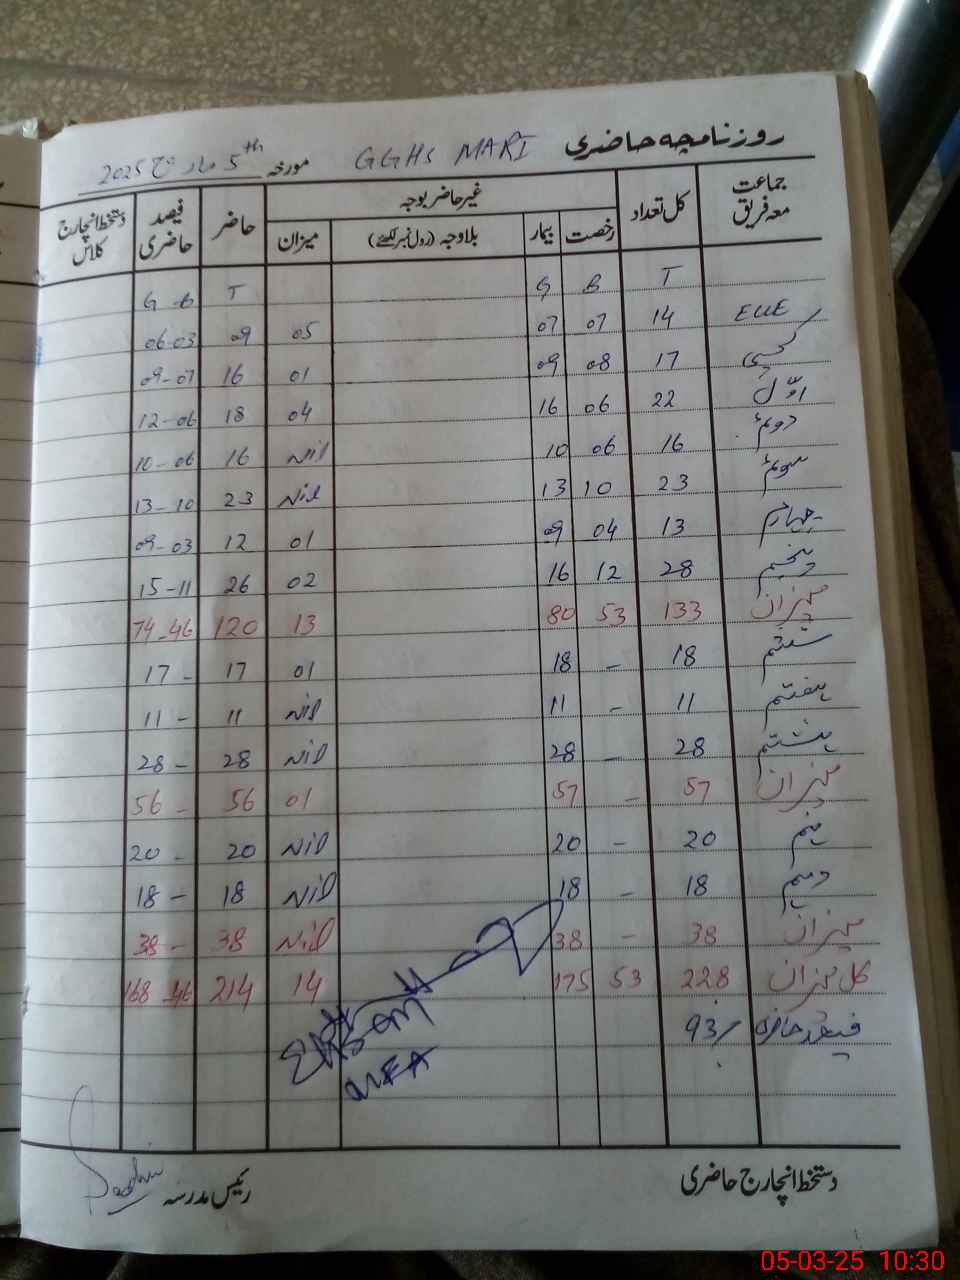 روزنامچہ حاضری GGHS MARI مورخہ 5th مارچ 2025
جماعت معہ فریق کل تعداد غیر حاضر بوجہ حاضر فیصد حاضری دستخط انچارج کلاس
رخصت بیمار بلاوجہ (رول نمبر لکھئے) میزان
T B G T G B
ECCE 14 07 07 05 09 06-03
کچی 17 08 09 01 16 09-07
اوّل 22 06 16 04 18 12-06
دوئم 16 06 10 Nil 16 10-06
سوئم 23 10 13 Nil 23 13-10
چہارم 13 04 09 01 12 09-03
پنجم 28 12 16 02 26 15-11
میزان 133 53 80 13 120 74-46
ششم 18 - 18 01 17 17-
ہفتم 11 - 11 Nil 11 11-
ہشتم 28 - 28 Nil 28 28-
میزان 57 - 57 01 56 56-
نہم 20 - 20 Nil 20 20-
دہم 18 - 18 Nil 18 18-
میزان 38 - 38 Nil 38 38-
کل میزان 228 53 175 14 214 168 46
فیصد حاضری 93%
دستخط انچارج حاضری رئیس مدرسہ
05-03-25 10:30